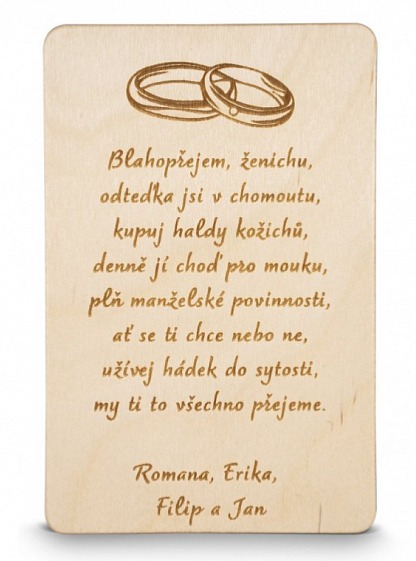 Blahopřejem, ženichu,
odteďka jsi v chomoutu,
kupuj haldy kožichů,
denně jí choď pro mouku,
plň manželské povinnosti,
ať se ti chce nebo ne,
užívej hádek do sytosti,
my ti to všechno přejeme.
Romana, Erika,
Filip a Jan